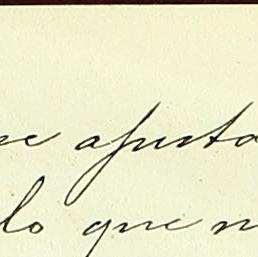 se apusto
lo que n